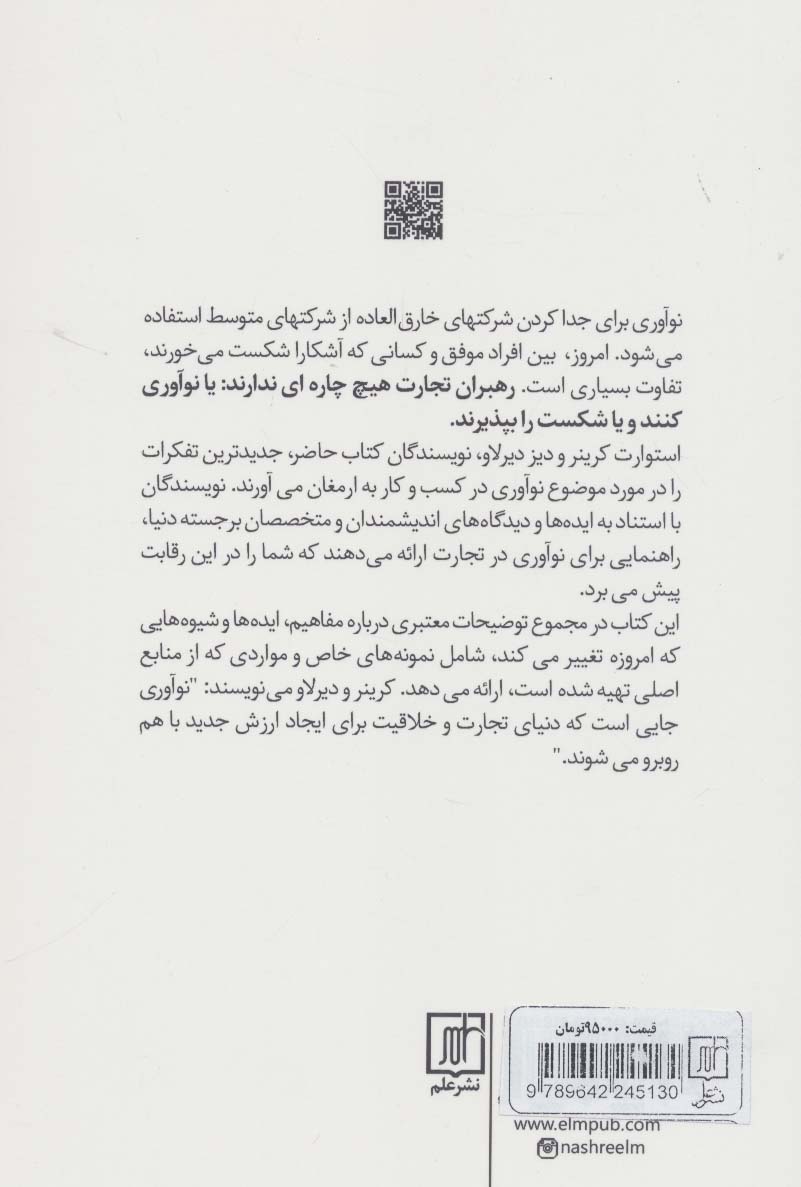 نوآوری برای جدا کردن شرکتهای خارق‌العاده از شرکتهای متوسط استفاده
می‌شود. امروز، بین افراد موفق و کسانی که آشکارا شکست می‌خورند،
تفاوت بسیاری است. رهبران تجارت هیچ چاره ای ندارند: یا نوآوری
کنند و یا شکست را بپذیرند.
استوارت کرینر و دیز دیرلاو، نویسندگان کتاب حاضر، جدیدترین تفکرات
را در مورد موضوع نوآوری در کسب و کار به ارمغان می آورند. نویسندگان
با استناد به ایده‌ها و دیدگاه‌های اندیشمندان و متخصصان برجسته دنیا،
راهنمایی برای نوآوری در تجارت ارائه می‌دهند که شما را در این رقابت
پیش می برد.
این کتاب در مجموع توضیحات معتبری درباره مفاهیم، ایده‌ها و شیوه‌هایی
که امروزه تغییر می کند، شامل نمونه‌های خاص و مواردی که از منابع
اصلی تهیه شده است، ارائه می دهد. کرینر و دیرلاو می‌نویسند: "نوآوری
جایی است که دنیای تجارت و خلاقیت برای ایجاد ارزش جدید با هم
روبرو می شوند."
قیمت: ۹۵۰۰۰تومان
9 789642 245130
نشر علم
نشر علم
www.elmpub.com
nashreelm